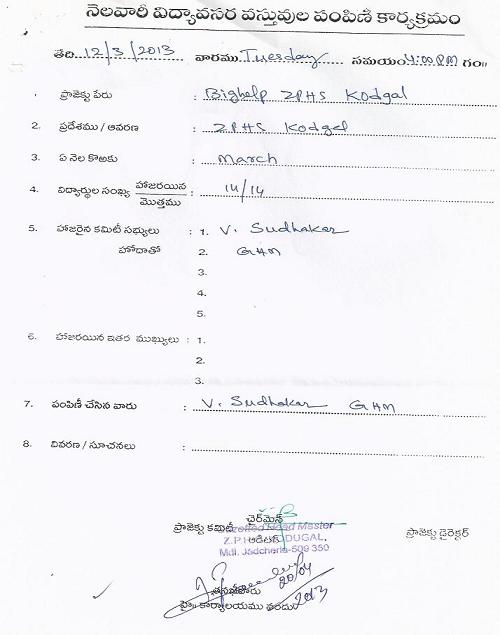 నెలవారీ విద్యావసర వస్తువుల పంపిణీ కార్యక్రమం
తేది 12/3/2013 వారము Tuesday సమయం 4:00 PM గం॥
ప్రాజెక్టు పేరు : Bighelp ZPHS Kodgal
2. ప్రదేశము / ఆవరణ : ZPHS Kodgel
3. ఏ నెల కొఱకు : March
4. విద్యార్థుల సంఖ్య హాజరయిన / మొత్తము : 14/14
5. హాజరైన కమిటీ సభ్యులు : 1. V. Sudhakar
హోదాతో 2. GHM
3.
4.
5.
6. హాజరయిన ఇతర ముఖ్యులు : 1.
2.
3.
7. పంపిణీ చేసిన వారు : V. Sudhakar GHM
8. వివరణ / సూచనలు :
ప్రాజెక్టు కమిటీ ఛైర్మెన్ ప్రాజెక్టు డైరెక్టర్
Head Master
ఆడిటర్
Z.P.H. DUGAL,
Mdl. Jadcherla-509 350
20/04
2013